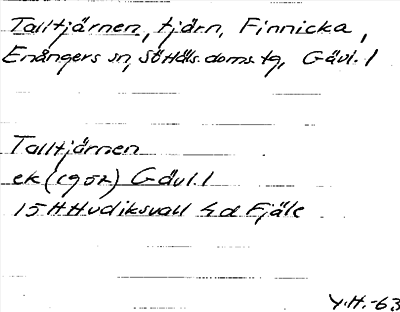 Talltjärnen, tjärn, Finnicka,
Enångers sn, Sö Häls. doms. tg, Gävl. l
Talltjärnen
ek (1952) Gävl. l
15H Hudiksvall 4d Fjäle
Y.H.-63